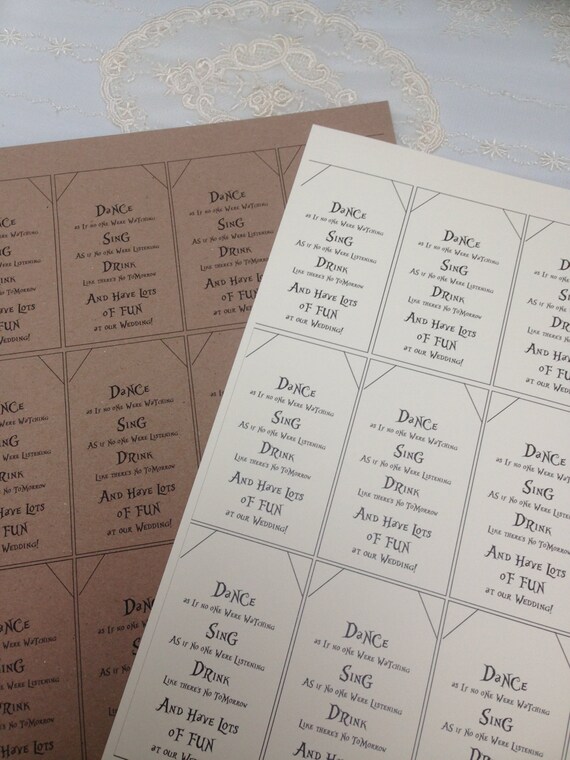 WaTching
Listening
Lots
DaNCe
as If no oNe Were WaTching
SinG
AS if No One Were Listening
DRink
Like there's No ToMorrow
And Have Lots
oF FUN
at our Wedding!
DaNCe
as If no oNe Were WaTching
SinG
AS if No One Were Listening
DRink
Like there's No ToMorrow
And Have Lots
oF FUN
at our Wedding!
oNe Were WaTching
SinG
One Were Listening
No ToMorrow
Have Lots
FUN
our Wedding!
DaNCe
as If no oNe Were WaTching
SinG
AS if No One Were Listening
DRink
Like there's No ToMorrow
And Have Lots
oF FUN
at our Wedding!
DaNCe
oNe Were WaTching
SinG
No One Were Listening
DRink
there's No ToMorrow
Have Lots
oF FUN
Wedding!
DaNCe
as If no
AS if
Like
And
DaNCe
as If no oNe Were WaTching
SinG
AS if No One Were Listening
DRink
Like there's No ToMorrow
And Have Lots
oF FUN
at our Wedding!
DaNCe
as If no oNe Were WaTching
SinG
AS if No One Were Listening
DRink
Like there's No ToMorrow
And Have Lots
oF FUN
at our Wedding!
as If no
AS if No One
Like there's
And Have
oF
at our
DaNCe
as If no oNe Were WaTching
SinG
AS if No One Were Listening
DRink
Like there's No ToMorrow
And Have Lots
oF FUN
at our Wedding!
DaNCe
as If no oNe Were WaTching
SinG
AS if No One Were Listening
DRink
Like there's No ToMorrow
And Have Lots
oF FUN
at our Wedding!
DaNCe
as If no oNe Were
SinG
AS if No One Were
DRink
Like there's No
And Have Lots
oF FUN
at our Wedding!
DaNCe
as If no oNe Were WaTching
SinG
AS if No One Were Listening
DRink
Like there's No ToMorrow
And Have Lots
oF FUN
at our Wedding!
DaNCe
as If no oNe Were WaTching
SinG
AS if No One Were Listening
DRink
Like there's No ToMorrow
And Have Lots
DaNCe
as If no oNe Were WaTching
SinG
AS if No One Were Listening